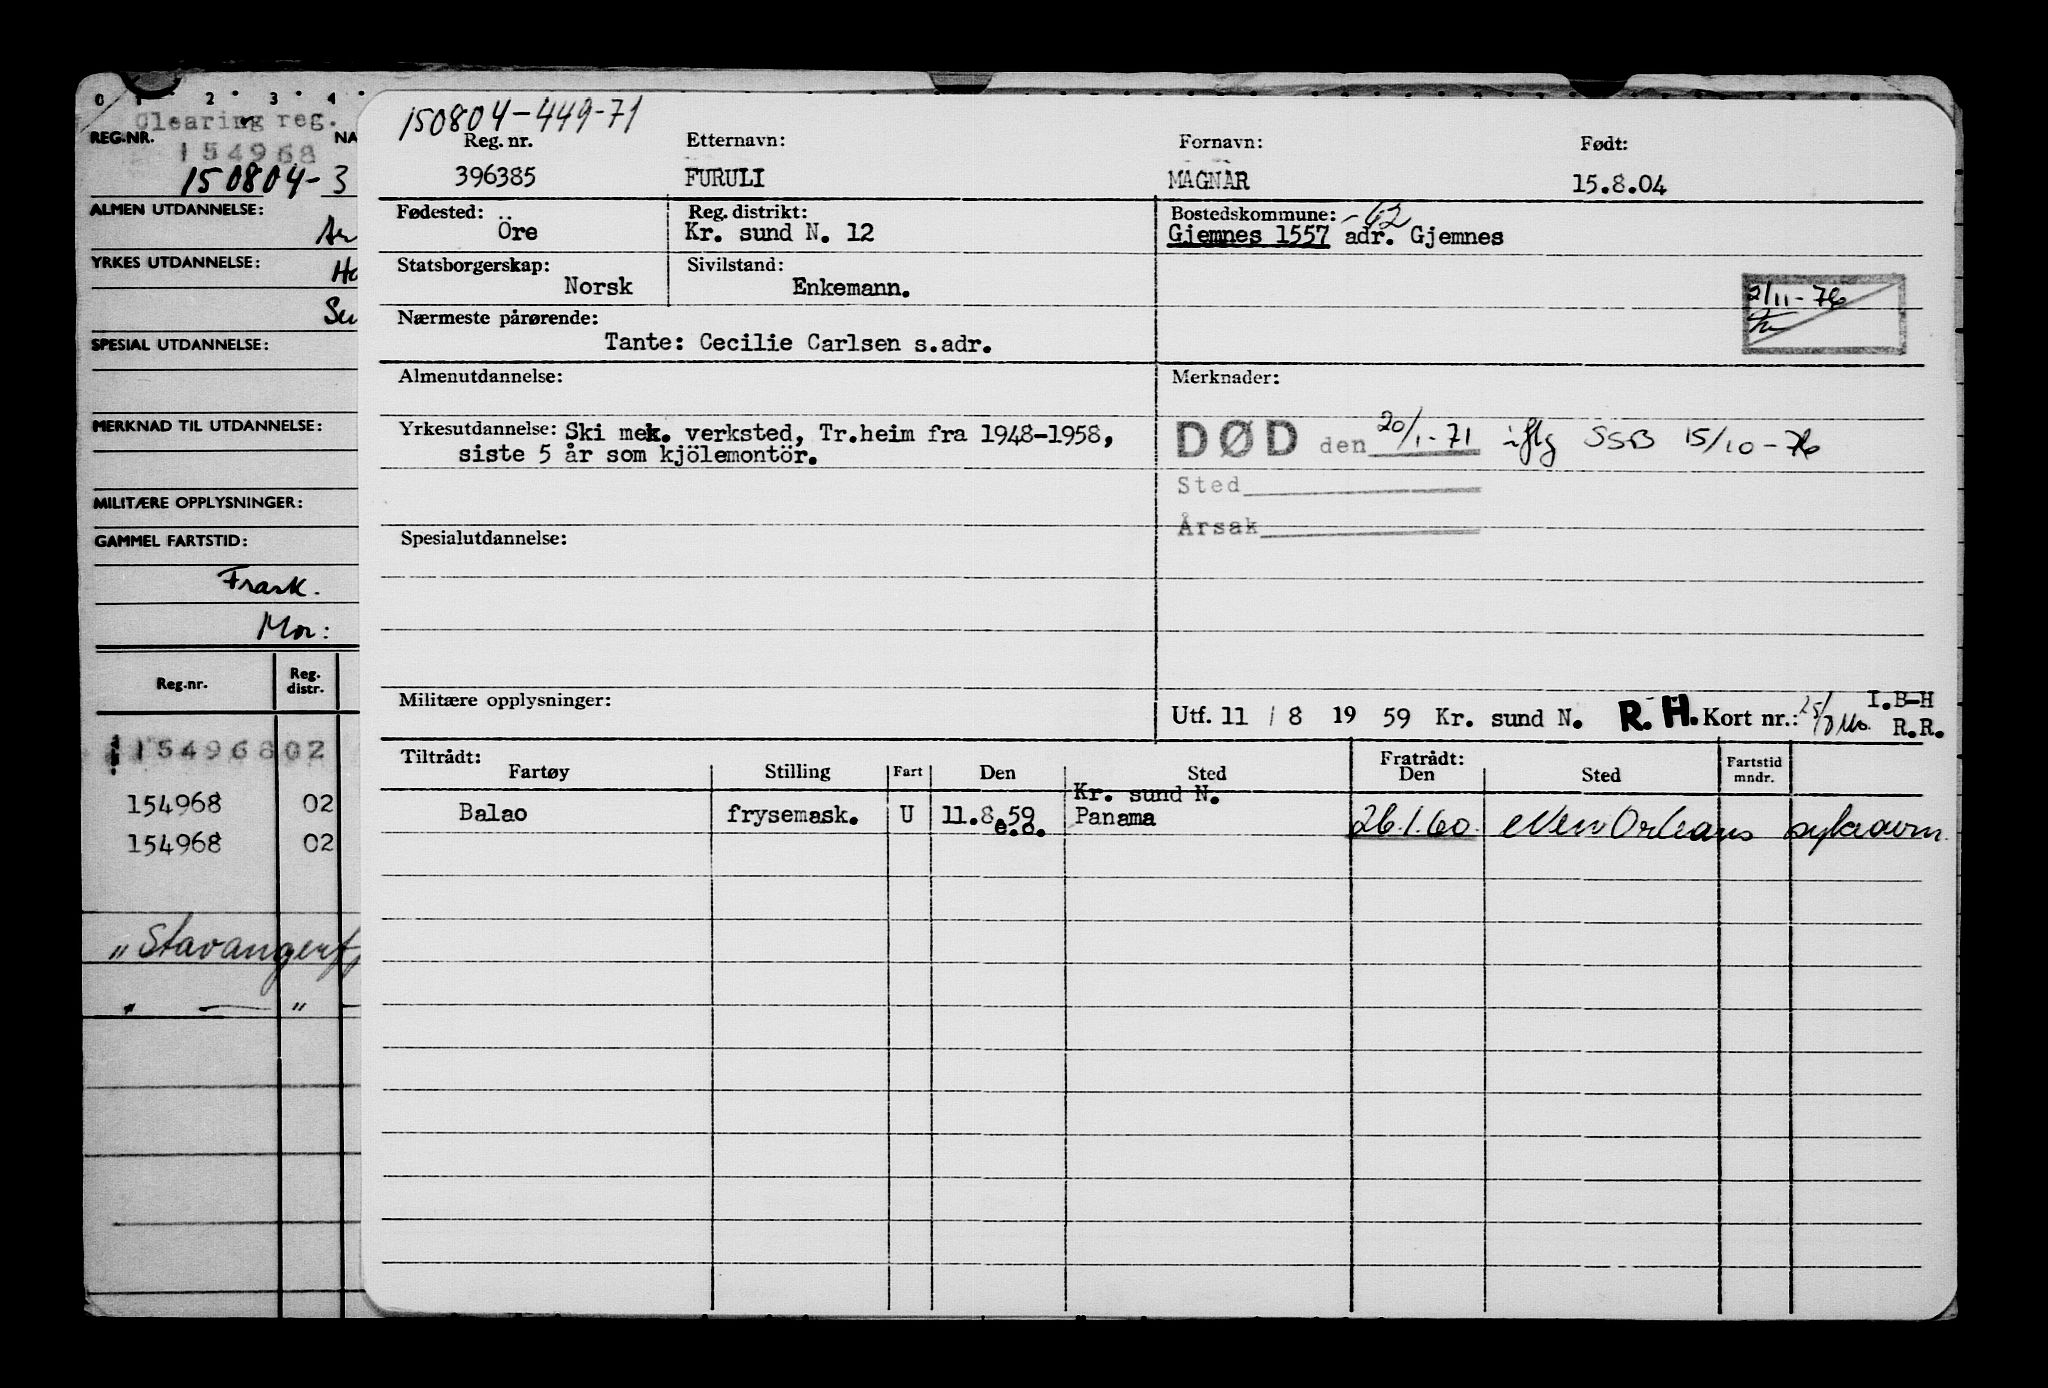 0 1 2 3 4
Clearing reg.
REG.NR. NA
154968
150804-3
ALMEN UTDANNELSE:
YRKES UTDANNELSE:
SPESIAL UTDANNELSE:
MERKNAD TIL UTDANNELSE:
MILITÆRE OPPLYSNINGER:
GAMMEL FARTSTID:
Frask.
Mor:
Reg.nr. Reg. distr.
15496802
154968 02
154968 02
"Stavangerfj
" — "
150804-449-71
Reg. nr. Etternavn: Fornavn: Født:
396385 FURULI MAGNAR 15.8.04
Fødested: Reg. distrikt: Bostedskommune: -62
Öre Kr. sund N. 12 Gjemnes 1557 adr. Gjemnes
Statsborgerskap: Sivilstand:
Norsk Enkemann.
2/11-76
Nærmeste pårørende:
Tante: Cecilie Carlsen s.adr.
Almenutdannelse: Merknader:
Yrkesutdannelse: Ski mek. verksted, Tr.heim fra 1948-1958,
siste 5 år som kjölemontör.
DØD den 20/1-71 iflg SSB 15/10-76
Sted
Årsak
Spesialutdannelse:
Militære opplysninger:
Utf. 11 / 8 19 59 Kr. sund N. R.H. Kort nr.: I.B-H
R.R.
Tiltrådt: Fratrådt: Fartstid
Fartøy Stilling Fart Den Sted Den Sted mndr.
Kr. sund N.
Balao frysemask. U 11.8.59 Panama 26.1.60. New Orleans sykeavm.
e.o.